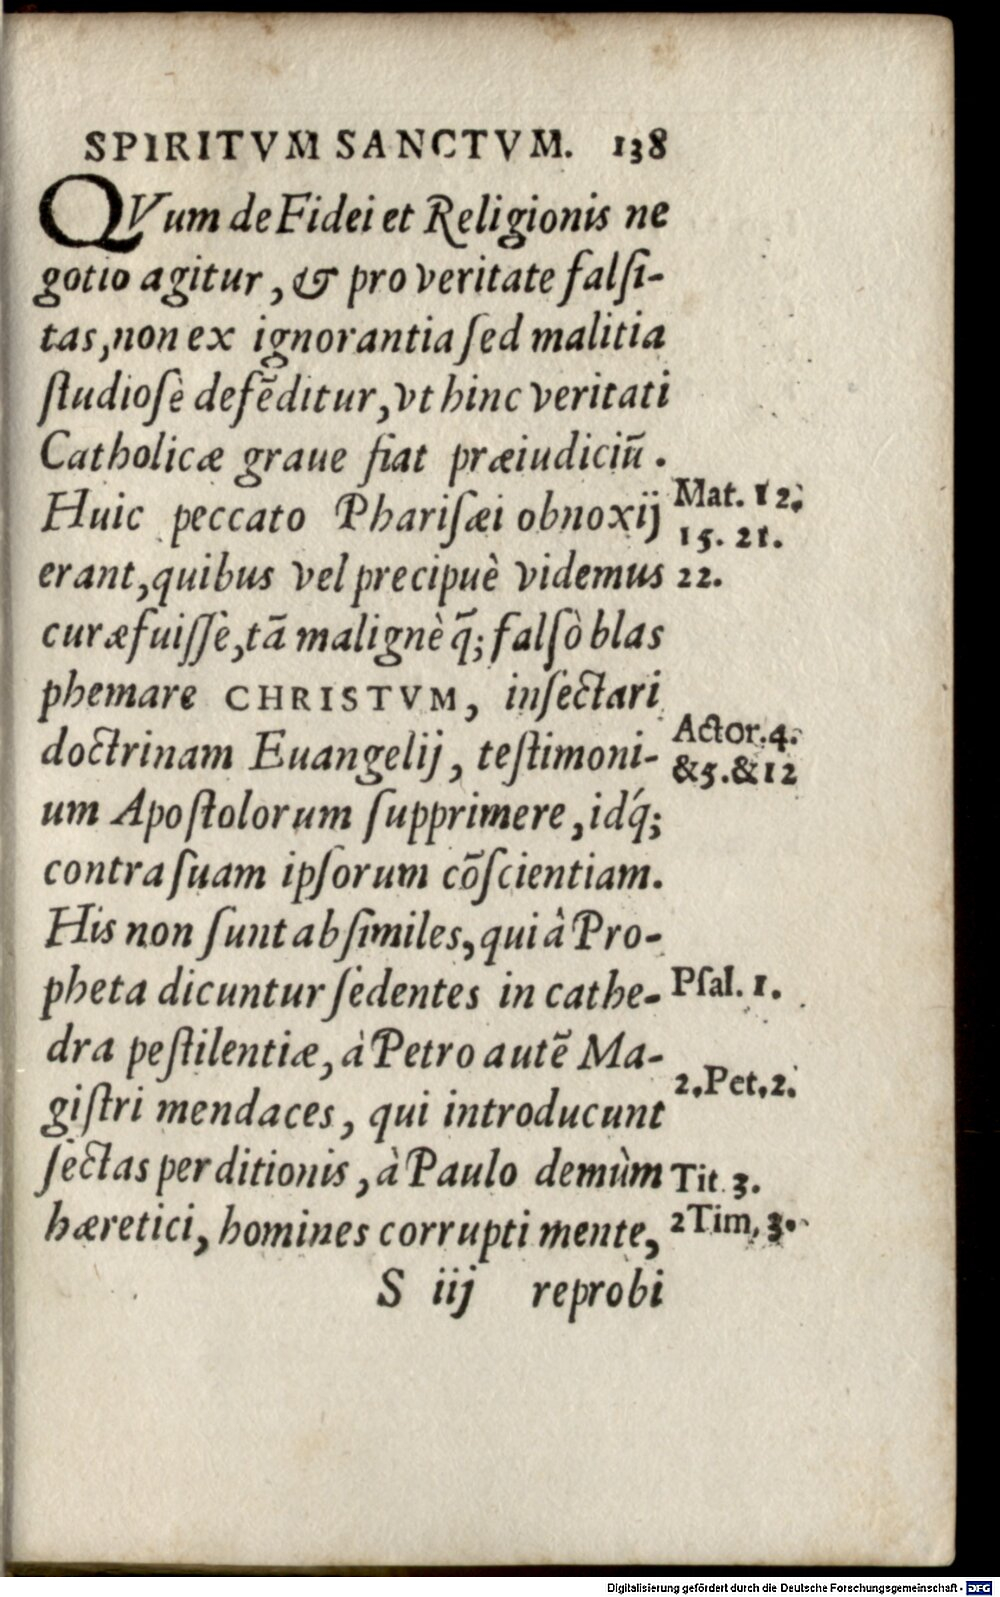 SPIRITVM SANCTVM. 138
QVum de Fidei et Religionis ne
gotio agitur, & pro veritate falsi-
tas, non ex ignorantia sed malitia
studiosè defẽditur, vt hinc veritati
Catholicæ graue fiat præiudiciũ.
Huic peccato Pharisæi obnoxij
Mat. 12.
15. 21.
erant, quibus vel precipuè videmus
22.
curæfuisse, tã malignè q̃; falsò blas
phemare CHRISTVM, insectari
doctrinam Euangelij, testimoni-
Actor. 4.
&5. &12
um Apostolorum supprimere, idq́;
contra suam ipsorum cõscientiam.
His non sunt absimiles, qui à Pro-
pheta dicuntur sedentes in cathe-
Psal. 1.
dra pestilentiæ, à Petro autẽ Ma-
2. Pet. 2.
gistri mendaces, qui introducunt
sectas perditionis, à Paulo demùm
Tit. 3.
hæretici, homines corrupti mente,
2 Tim. 3.
S iij reprobi
Digitalisierung gefördert durch die Deutsche Forschungsgemeinschaft - DFG